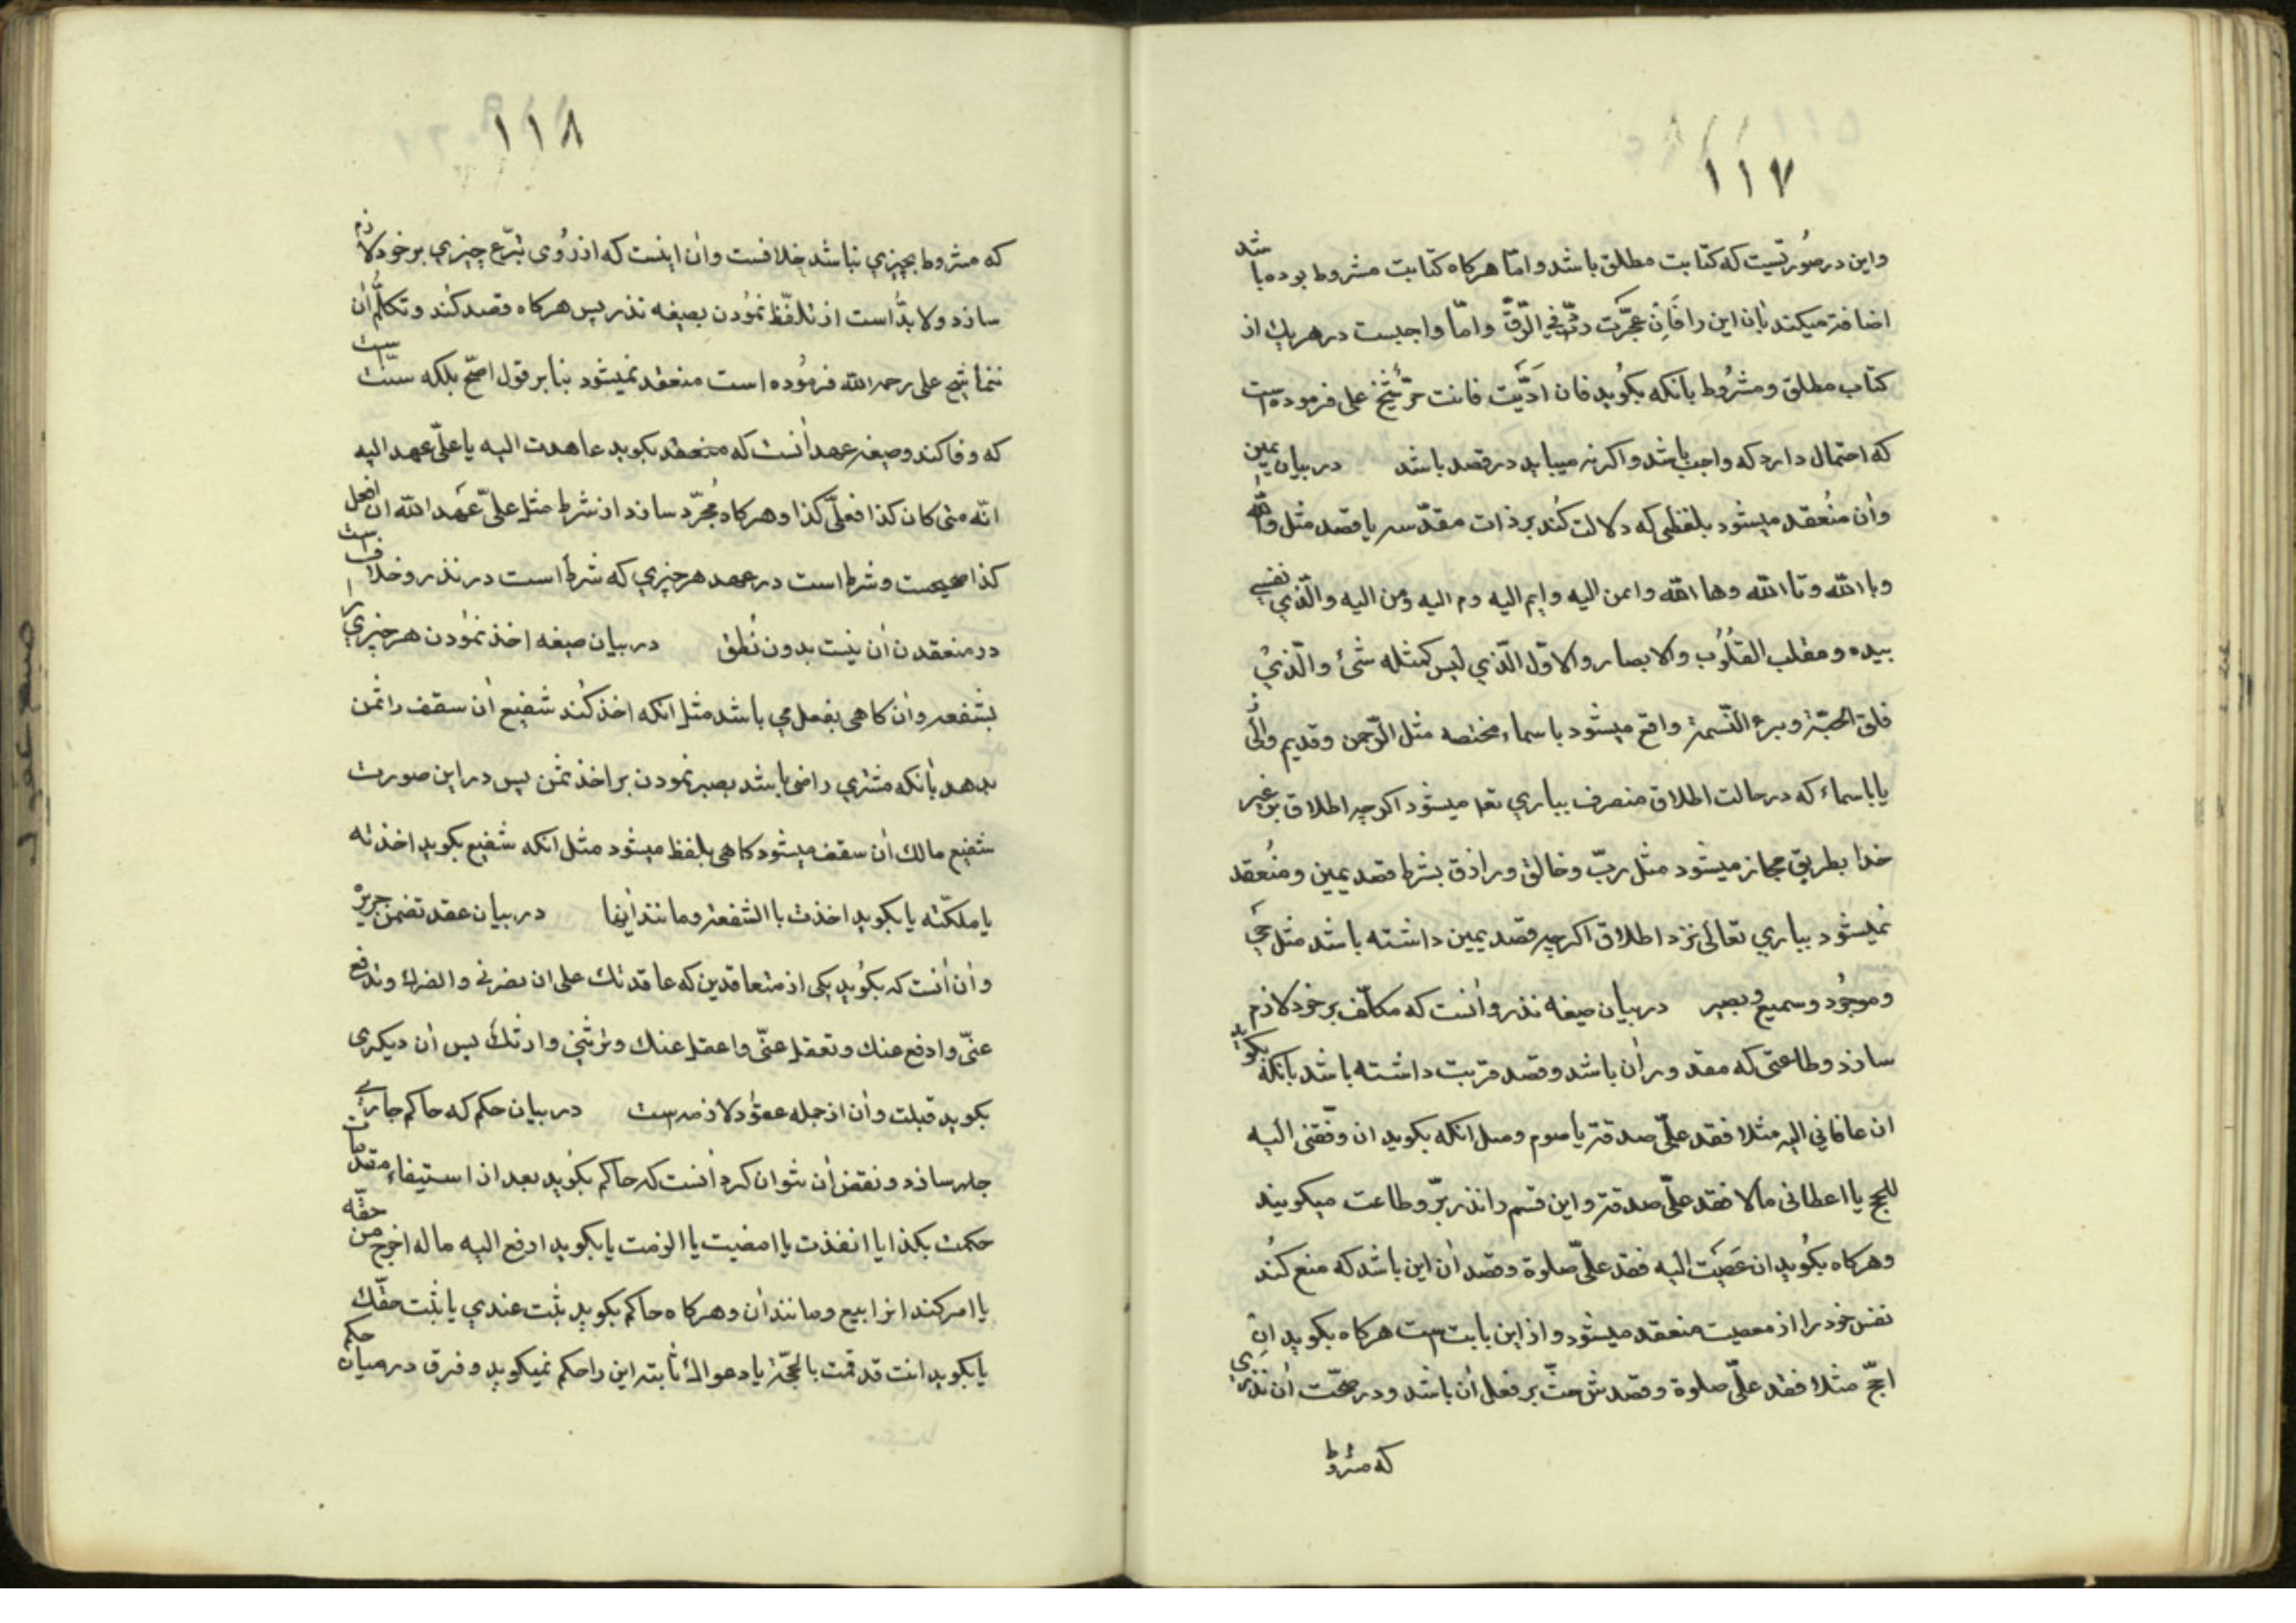 ۱۱۷
واین در صورتیست که کتابت مطلق باشد و امّا هرکاه کتابت مشروط بوده باشد
اضافه میکند بان این را فَاِن عجزَت فی الرّقّ و امّا واجبست در هریك از
کتاب مطلق و مشرُوط بانکه بکُوید فان ادّیت فانت حرّ شیخ علی فرموده است
که احتمال دارد که واجب باشد و اکرنه میباید در قصد باشد در بیان یمین
وآن منُعقد میشود بلفظی که دلالت کُند بر ذات مقدّسه با قصد مثل والله
وباالله وتاالله وهاالله وایمن الیه وایم الیه وم الیه ومن الیه والّذي نفسي
بیده ومقلب القلُوُب والابصار والاوّل الّذي لیس کمثله شئ والّذيُ
فلق الحبّة وبرء النّسمة واقع میشود باسماء مختصه مثل الرّحمن وقدیم
یا باسماء که درحالت اطلاق منصرف بباري تعا میشود اکرچه اطلاق بر غیر
خدا بطریق مجاز میشود مثل ربّ وخالق ورازق بشرط قصد یمین ومنُعقد
نمیشود بباري تعالی نزد اطلاق اکرچه قصد یمین داشته باشد مثل حَي
وموجُود وسمیع وبصیر در بیان صیغه نذر وآنست که مکلّف بر خود لازم
سازد وطاعتی که مقدور آن باشد وقصد قربت داشته باشد بانکه بکوید
ان عافاني الیه مثلا فقد علیّ صدقة یا صوم ومثل انکه بکوید ان وفّقنی الیه
للحج یا اعطانی مالا فقد علیّ صدقة واین قسم را نذر برّ وطاعت میکویند
وهرکاه بکُوید ان عَصَیَت الیه فقد علیّ صلوة وقصد آن این باشد که منع کُند
نفس خود را از معصیت منعقد میشود واز این بابت است هرکاه بکوید ان
احجّ مثلا فقد علیّ صلوة وقصدش حثّ بر فعل آن باشد ودر صحّت آن نذري
که مشرُوط
۱۱۸
که مشروط بچیزي نباشد خلافست وآن اینست که از رُوی تبرّع چیزي بر خود لازم
سازد ولا بدُّ است از تلفّظ نمُودن بصیغه نذر پس هرکاه قصد کُند وتکلُّم آن
ننماید شیخ علی رحمه الله فرمُوده است منعقد نمیشود بنا بر قول اصحّ بلکه سنّت است
که وفا کند وصیغه عهد آنست که منعقد بکوید عاهدت الیه یا علیّ عهد الیه
انّه متی کان کذا فعلیّ کذا وهرکاه مُجرّد سازد از شرط مثل علیّ عَهد الله ان افعل
کذا صحیحست وشرط است در عهد هر چیزي که شرط است در نذر وخلاف است
در منعقدن آن نیت بدون نُطق در بیان صیغه اخذ نمُودن هر چیزي را
بشفعه وآن کاهی بفعل می باشد مثل انکه اخذ کُند شفیع آن سقف را ثمن
بدهد بانکه مشتري راضی باشد بصبر نمودن بر اخذ ثمن پس در این صورت
شفیع مالك آن سقف میشود کاهی بلفظ میشود مثل انکه شفیع بکوید اخذته
یا ملکّته یا بکوید اخذت باالشفعة وماننداینها در بیان عقد تضمن جریره
وآن آنست که بکُوید یکی از متعاقدین که عاقدتك علی ان نصرنی وانصرك وتدفع
عنّي وادفع عنك وتعقل عنّي واعقل عنك وترثني وارثكَ پس آن دیکری
بکوید قبلت وآن از جمله عقوُد لازمه است در بیان حکم که حاکم جاري
سازد ونقض آن نتوان کرد آنست که حاکم بکُوید بعد از استیفاء مقدمات
حکمت بکذا یا انفذت یا امضیت یا الزمت یا بکوید ادفع الیه ماله اخرج من حقّه
یا امر کند او را ببیع ومانند آن وهرکاه حاکم بکوید ثبت عندي یا ثبت حقّك
یا بکوید انت قد قمت بالحجّة یا دعواك ثابته این را حکم نمیکوید وفرق در میان حکم